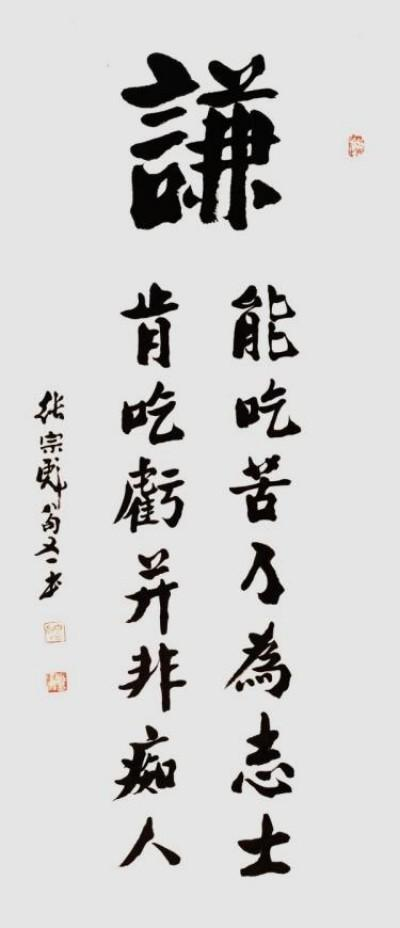 謙
能吃苦乃為志士
肯吃虧并非痴人
张宗彪